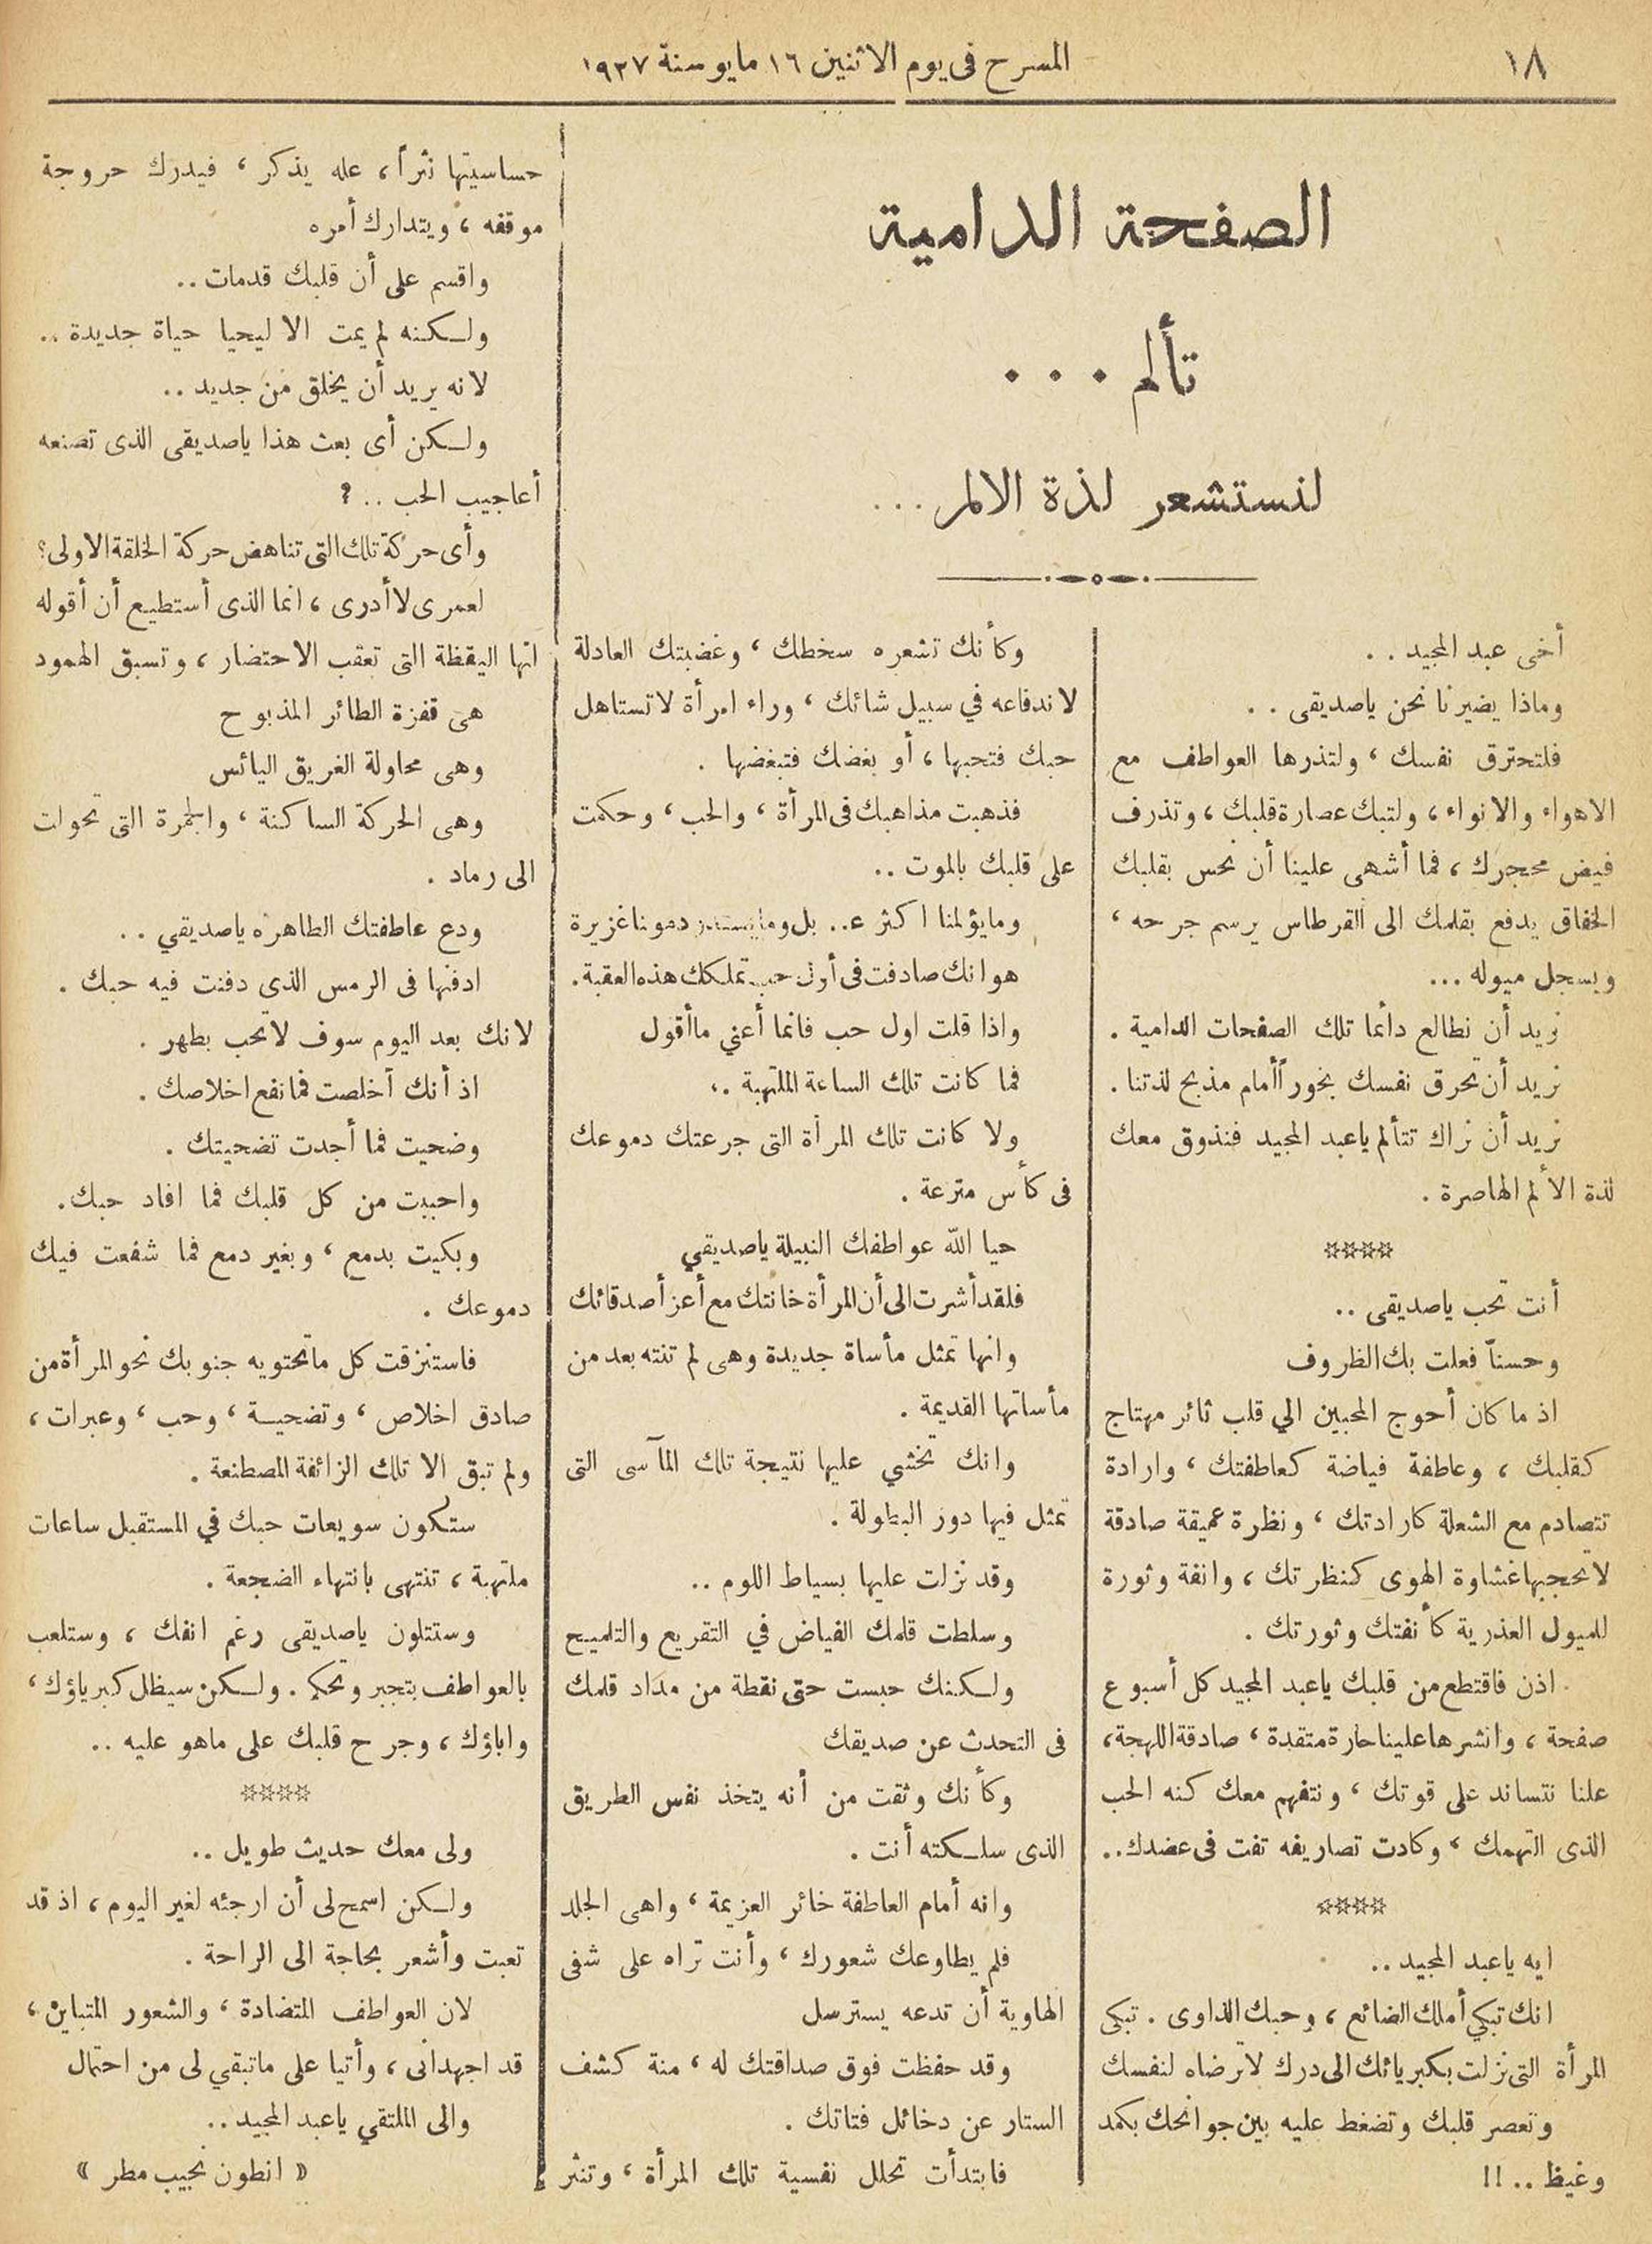 ١٨
المسرح فى يوم الاثنين ١٦ مايو سنة ١٩٢٧
الصفحة الدامية
تألم . . .
لنستشعر لذة الالم ...
أخى عبد المجيد . .
وماذا يضيرنا نحن ياصديقى . .
فلتحترق نفسك ، ولتذرها العواطف مع
الاهواء والانواء ، ولتبك عصارة قلبك ، وتذرف
فيض محجرك ، فما أشهى علينا أن نحس بقلبك
الخفاق يدفع بقلمك الى القرطاس يرسم جرحه ،
ويسجل ميوله ...
نريد أن نطالع دائما تلك الصفحات الدامية .
نريد أن تحرق نفسك بخوراً أمام مذبح لذتنا .
نريد أن نراك تتألم ياعبد المجيد فنذوق معك
لذة الألم الهاصرة .
****
أنت تحب ياصديقى ..
وحسناً فعلت بك الظروف
اذ ما كان أحوج المحبين الي قلب ثائر مهتاج
كقلبك ، وعاطفة فياضة كعاطفتك ، وارادة
تتصادم مع الشعلة كارادتك ، ونظرة عميقة صادقة
لا تحجبها غشاوة الهوى كنظرتك ، وانفة وثورة
للميول العذرية كأنفتك وثورتك .
اذن فاقتطع من قلبك ياعبد المجيد كل أسبوع
صفحة ، وانشرها علينا حارة متقدة ، صادقة اللهجة ،
علنا نتساند على قوتك ، ونتفهم معك كنه الحب
الذى التهمك ، وكادت تصاريفه تفت فى عضدك ..
****
ايه ياعبد المجيد ..
انك تبكي أملك الضائع ، وحبك الذاوى . تبكى
المرأة التى نزلت بكبريائك الى درك لا ترضاه لنفسك
وتعصر قلبك وتضغط عليه بين جوانحك بكمد
وغيظ .. !!
وكأنك تشعره سخطك ، وغضبتك العادلة
لاندفاعه في سبيل شائك ، وراء امرأة لا تستاهل
حبك فتحبها ، أو بغضك فتبغضها .
فذهبت مذاهبك فى المرأة ، والحب ، وحكمت
على قلبك بالموت ..
ومايؤلمنا اكثر .. بل وما دموعنا غزيرة
هو انك صادفت فى أول حب تملكك هذه العقبة .
واذا قلت اول حب فانما أعني ماأقول
فما كانت تلك الساعة الملتهبة .،
ولا كانت تلك المرأة التى جرعتك دموعك
فى كأس مترعة .
حيا الله عواطفك النبيلة ياصديقي
فلقد أشرت الى أن المرأة خانتك مع أعز أصدقائك
وانها تمثل مأساة جديدة وهى لم تنته بعد من
مأساتها القديمة .
وانك تخشي عليها نتيجة تلك المآسى التى
تمثل فيها دور البطولة .
وقد نزلت عليها بسياط اللوم ..
وسلطت قلمك الفياض في التقريع والتلميح
ولكنك حبست حتى نقطة من مداد قلمك
فى التحدث عن صديقك
وكأنك وثقت من أنه يتخذ نفس الطريق
الذى سلكته أنت .
وانه أمام العاطفة خائر العزيمة ، واهى الجلد
فلم يطاوعك شعورك ، وأنت تراه على شفى
الهاوية أن تدعه يسترسل
وقد حفظت فوق صداقتك له ، منة كشف
الستار عن دخائل فتاتك .
فابتدأت تحلل نفسية تلك المرأة ، وتنثر
حساسيتها نثراً ، عله يذكر ، فيدرك حروجة
موقفه ، ويتدارك أمره
واقسم على أن قلبك قدمات ..
ولكنه لم يمت الا ليحيا حياة جديدة ..
لانه يريد أن يخلق من جديد ..
ولكن أى بعث هذا ياصديقى الذى تصنعه
أعاجيب الحب .. ؟
وأى حركة تلك التى تناهض حركة الخلقة الاولى ؟
لعمرى لا أدرى ، انما الذى أستطيع أن أقوله
انها اليقظة التى تعقب الاحتضار ، وتسبق الهمود
هى قفزة الطائر المذبوح
وهى محاولة الغريق اليائس
وهى الحركة الساكنة ، والجمرة التى تحولت
الى رماد .
ودع عاطفتك الطاهره ياصديقي ..
ادفنها فى الرمس الذى دفنت فيه حبك .
لانك بعد اليوم سوف لا تحب بطهر .
اذ أنك أخلصت فما نفع اخلاصك .
وضحيت فما أجدت تضحيتك .
واحببت من كل قلبك فما افاد حبك .
وبكيت بدمع ، وبغير دمع فما شفعت فيك
دموعك .
فاستنزفت كل ماتحتويه جنوبك نحو المرأة من
صادق اخلاص ، وتضحية ، وحب ، وعبرات ،
ولم تبق الا تلك الزائفة المصطنعة .
ستكون سويعات حبك في المستقبل ساعات
ملتهبة ، تنتهى بانتهاء الضجعة .
وستتلون ياصديقى رغم انفك ، وستلعب
بالعواطف بتجبر وتحكم . ولكن سيظل كبرياؤك ،
واباؤك ، وجرح قلبك على ماهو عليه ..
****
ولى معك حديث طويل ..
ولكن اسمح لى أن ارجئه لغير اليوم ، اذ قد
تعبت وأشعر بحاجة الى الراحة .
لان العواطف المتضادة ، والشعور المتباين ،
قد اجهدانى ، وأتيا على ماتبقي لى من احتمال
والى الملتقي ياعبد المجيد ..
« انطون نجيب مطر »